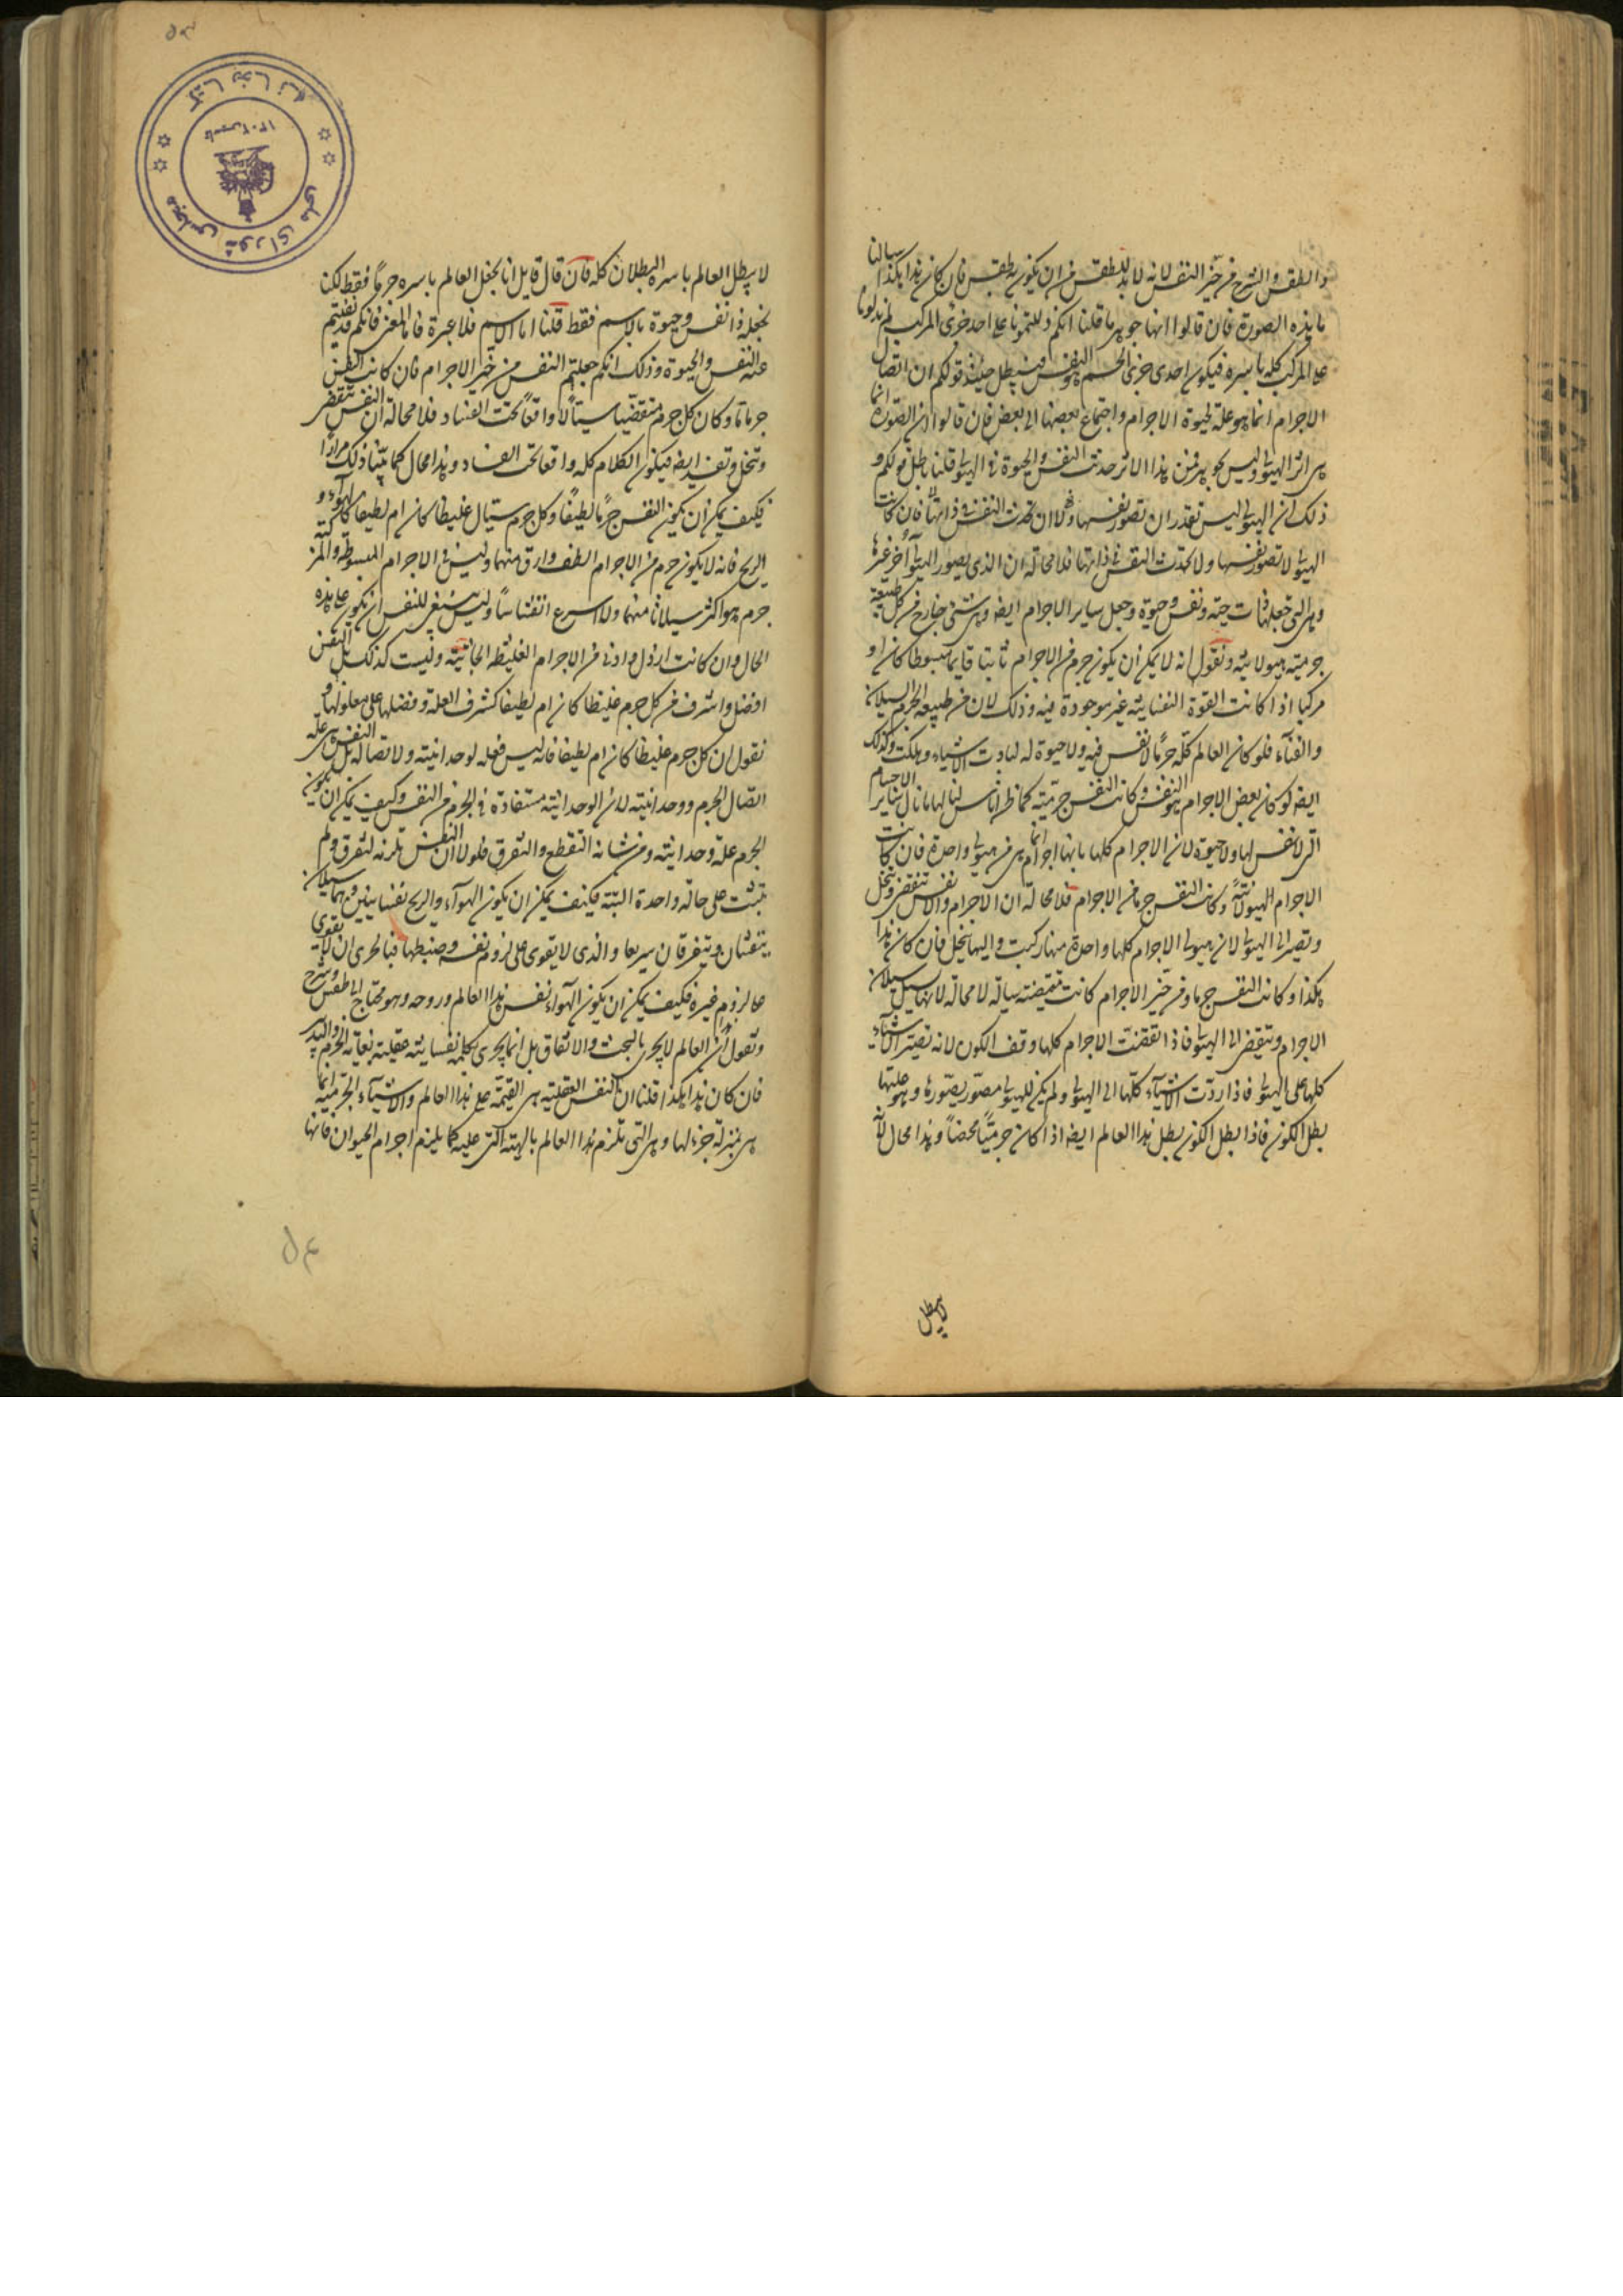 والطقس والشرح من حيز النفس لانه لا بد للطقس من ان يكون به طقس فان كان هذا هكذا سالنا
ما هذه الصورة فان قالوا انها جوهر ما قلنا انكم دللتمونا على احد جزئى المركب لم تدلونا
على المركب كله باسره فيكون احدى جزئى الجسم هو النفس فيبطل حينئذ قولكم ان اتصال
الاجرام انما هو علة لحيوة الاجرام واجتماع بعضها الى بعض فان قالوا ان الصورة انما
هى اثر الهيولى وليس بجوهر فمن هذا الاثر حدثت النفس والحيوة فى الهيولى قلنا باطل قولكم و
ذلك ان الهيولى ليس تقدر ان تصور نفسها ولا ان تحدث النفس فى ذاتها فان كانت
الهيولى لا تصور نفسها ولا تحدث النفس فى ذاتها فلا محالة ان الذى يصور الهيولى آخر غيرها
وهى التى تجعلها ذات جثة ونفس وحيوة وجعل ساير الاجرام ايضه وهى شئى خارج من كل طبيعة
جرمية هيولانية ونقول انه لا يمكن ان يكون جرم من الاجرام ثابتا قايما مبسوطا كان او
مركبا اذا كانت القوة النفسانية غير موجودة فيه وذلك لان من طبيعة الجرم السيلان
والفنآء فلو كان العالم كله جرما لا نفس فيه ولا حيوة له لبادت الاشياء وهلكت وكذلك
ايضه لو كان بعض الاجرام هو النفس وكانت النفس جرمية كما ظن اناس لنالها ما نال ساير الاجسام
التى لا نفس لها ولا حيوة لان الاجرام كلها بانها اجرام انما هى من هيولى واحدة فان كانت
الاجرام الهيولانية وكانت النفس جرما من الاجرام فلا محالة ان الاجرام والانفس تنتقض وتنحل
وتصير الى الهيولى لان هيولى الاجرام كلها واحدة منها ركبت واليها ينحل فان كان هذا
هكذا وكانت النفس جرما من حيز الاجرام كانت منتقضة سيالة لا محالة لانها تسيل سيلان
الاجرام وتنتقض الى الهيولى فاذا انتقضت الاجرام كلها وقف الكون لانه تصير الاشياء
كلها الى الهيولى فاذا ردت الاشيآء كلها الى الهيولى ولم يكن للهيولى مصور يصورها وهو علتها
بطل الكون فاذا بطل الكون بطل هذا العالم ايضه اذا كان جرميا محضا وهذا محال لانه
لا يبطل
لا يبطل العالم باسره البطلان كله فان قال قايل انا لا نجعل العالم باسره جرما فقط لكنا
نجعله ذا نفس وحيوة بالاسم فقط قلنا اما الاسم فلا عبرة فاما المعنى فانكم قد نفيتم
عنه النفس والحيوة وذلك انكم جعلتم النفس من حيز الاجرام فان كانت النفس
جرما ما وكان كل جرم منتقضيا سيالا واقعا تحت الفساد فلا محالة ان النفس تنتقض
وتنحل وتفسد ايضه فيكون الكلام كله واقعا تحت الفساد وهذا محال كما بينا ذلك مرارا
فكيف يمكن ان تكون النفس جرما لطيفا وكل جرم سيال غليظا كان ام لطيفا كالهوآء و
الريح فانه لا يكون جرم من الاجرام الطف وارق منهما وليس فى الاجرام المبسوطة والمركبة
جرم هو اكثر سيلانا منهما ولا اسرع انفشاشا وليس ينبغى للنفس ان يكون على هذه
الحال وان كانت ارذل وادنا من الاجرام الغليظة الجاسية وليست كذلك بل النفس
افضل واشرف من كل جرم غليظا كان ام لطيفا كشرف العلة وفضلها على معلولها و
نقول ان كل جرم غليظا كان ام لطيفا فانه ليس فعله لوحدانيته ولا اتصاله بل النفس هى علة
اتصال الجرم ووحدانيته لان الوحدانية مستفادة فى الجرم من النفس وكيف يمكن ان يكون
الجرم علة وحدانيته ومن شانه التقطع والتفرق فلولا ان النفس تلزمه لتفرق ولم
يثبت على حالة واحدة البتة فكيف يمكن ان يكون الهوآء والريح نفسانيين وهما سيلان
ينفشان ويتفرقان سريعا والذى لا يقوى على لزوم نفسه وضبطها فبالحرى ان لا يقوى
على لزوم غيره فكيف يمكن ان يكون الهوآء نفس هذا العالم وروحه وهو محتاج الى طقس وشرح
ونقول ان العالم لا يجرى بالبخت والاتفاق بل انما يجرى بكلمة نفسانية عقلية بغاية الحزم والتدبير
فان كان هذا هكذا قلنا ان النفس العقلية هى القيمة على هذا العالم والاشيآء الجرمية انما
هى بمنزلة جزء لها وهى التى تلزم هذا العالم بالهيئة التى عليه كما يلزم اجرام الحيوان فانها